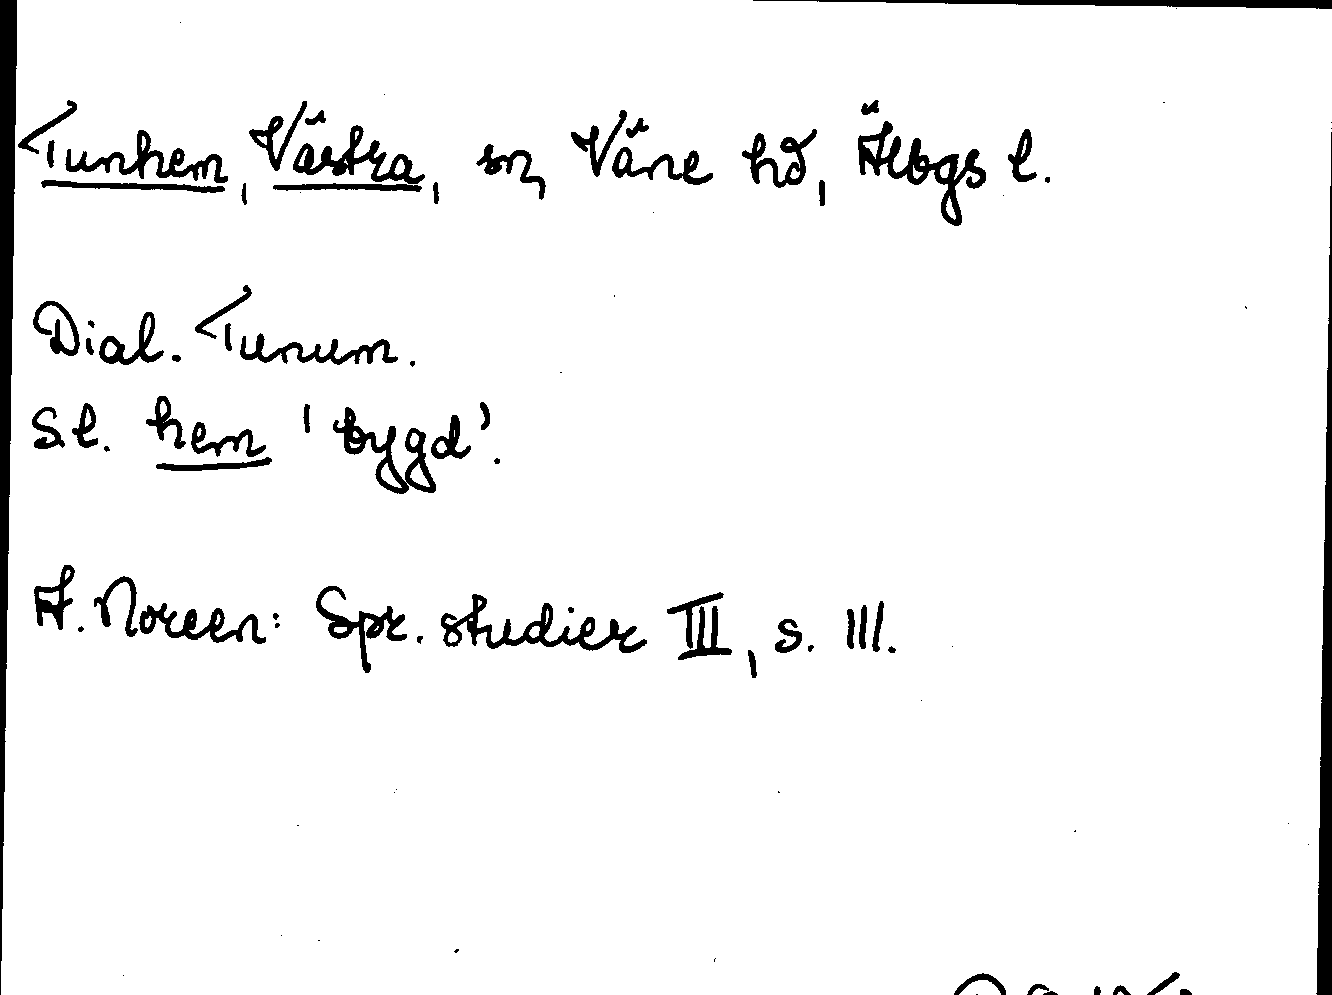 Tunhem, Västra, sn, Väne hd, Älvbgs l.
Dial. Tunum.
S.l. hem 'bygd'.
A. Noreen: Spr. studier III, s. 111.